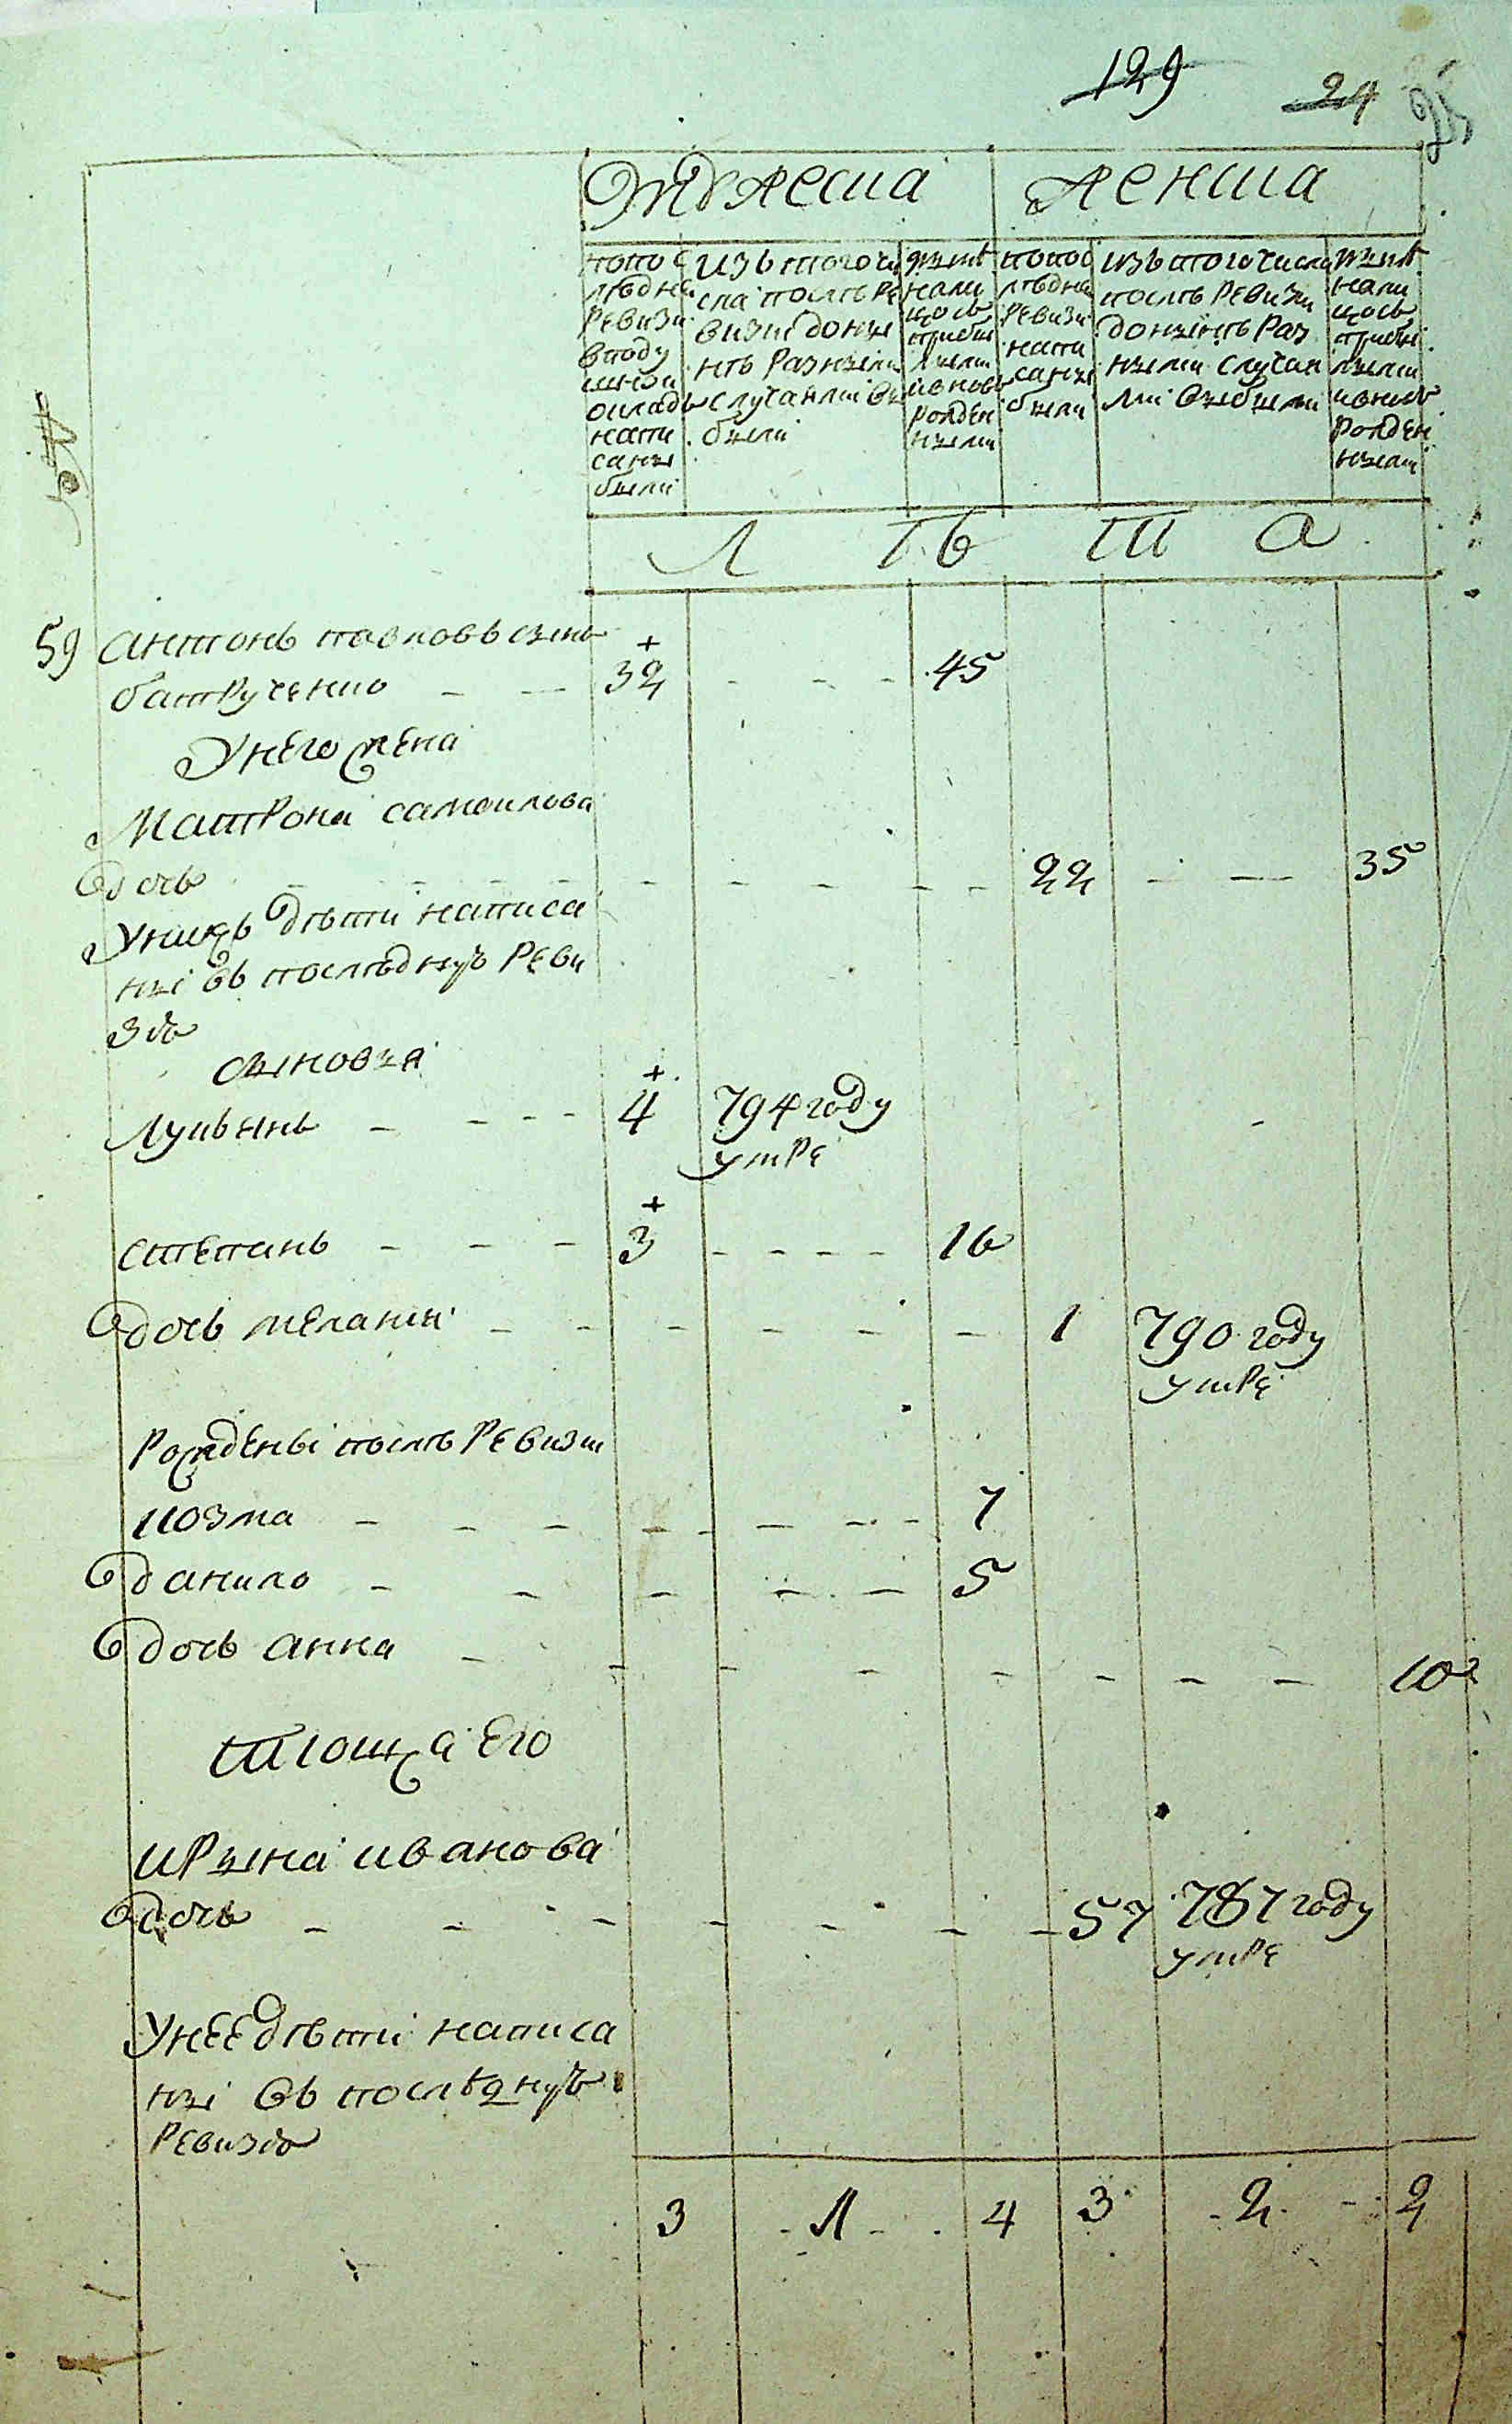 129 24
мужеска женска
попос
лѣдне
ревизи
вподу
шнои
окладъ
напи
саны
были
изъ того чи
сла послѣ ре
визии доны
нѣ разными
случаями вы
были
ныне
нали
цось
прибы
лыми
ивновь
рожден
ными
попос
лѣдне
ревизи
напи
саны
были
изъ того числа
послѣ ревизи
донынѣ раз
ными случая
ми выбыли
ныне
нали
цось
прибы
лыми
ивновь
рожден
ными
№
л ѣ т а
59 антонъ павловъ сынъ
батрученко 32 45
Унего жена
матрона самоилова
дочь 22 35
Унихъ дѣти написа
ни въ последную реви
зию
сыновья
лукьянъ 4 794 году
умре
степанъ 3 16
дочь меланья 1 790 году
умре
рождены послѣ ревизии
козма 7
данило 5
дочь анна 10
тюща его
ирына иванова
дочь 57 787 году
умре
Унее дѣти написа
ны въ последную
ревизию
3 1 4 3 2 2